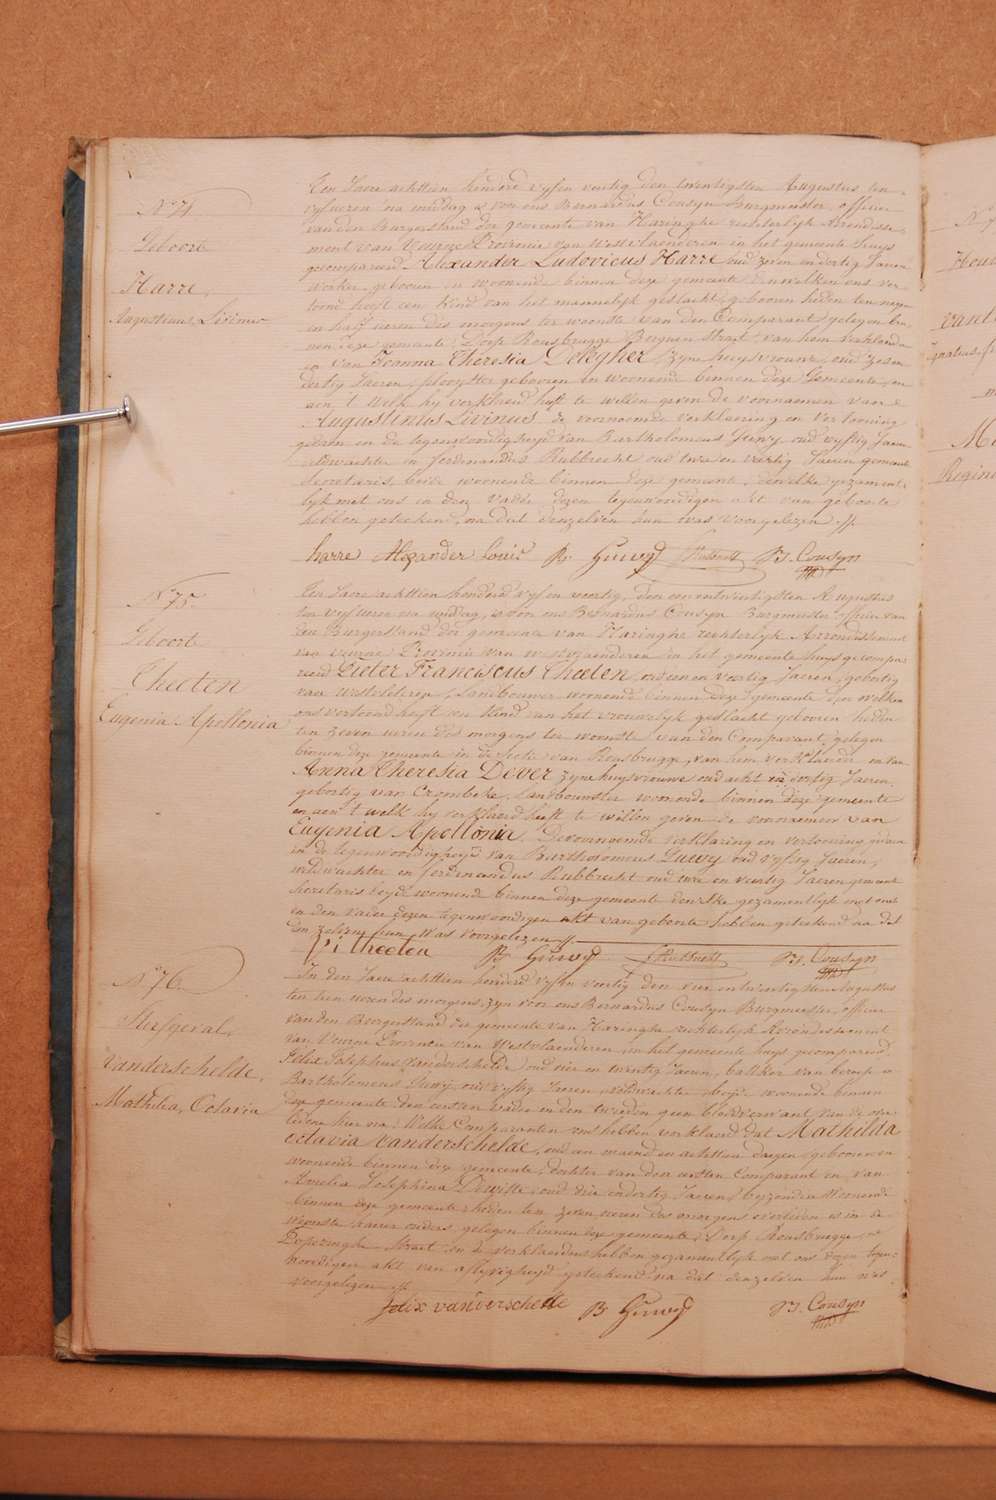 N° 74
Geboort
Harre,
Augustinus, Livinus
Een Jaere achttien honderd vyf en veertig den twentigsten Augustus ten
vyf ueren na middag is voor ons Bernardus Cousyn Burgmeester, officier
van den Burgerstand der gemeente van Haringhe rechterlyk Arrondisse-
ment van Veurne Provincie van Westvlaenderen in het gemeente huys
gecompareerd Alexander Ludovicus Harre oud zeven en dertig Jaeren
werker, geboren en woonende binnen deze gemeente denwelken ons ver-
toond heeft een kind van het mannelyk geslacht, geboren heden ten negen
en half ueren des morgens ter woonste van den Comparant gelegen bin-
nen deze gemeente, Dorp Rousbrugge Bergnen Straet, van hem verklaerder
en van Joanna Theresia Deleyher, zyne huysvrouwe, oud zeven
dertig Jaeren, geboren en woonende binnen deze Gemeente, en
aen 't welk hy verklaerd heeft te willen geven de voornamen van
Augustinus Livinus de voornoemde verklaering en vertooning
gedaen in de tegenwoordigheyd van Bartholomeus Guwy oud vyftig Jaeren
veldwachter en ferdinandus Rubbrecht oud twee en veertig Jaeren gemeente
Secretaris, beide woonende binnen deze gemeente, denwelke gezament-
lyk met ons en den vader dezen tegenwoordigen akt van geboorte
hebben geteekend, na dat denzelven hun was voorgelezen
harre Alexander louis B. Guwy f. Rubbrecht B. Cousyn
N° 75
Geboort
Theeten
Eugenia Apollonia
Een Jaere achttien honderd vyf en veertig, den een en twentigsten Augustus
ten vyf ueren na middag, is voor ons Bernardus Cousyn Burgmeester officier van
den Burgerstand der gemeente van Haringhe rechterlyk Arrondissement
van veurne Provincie van Westvlaenderen in het gemeente huys gecompa-
reerd Pieter Franciscus Theeten, oud en veertig Jaeren, geboortig
van Westvleteren, Landbouwer woonende binnen deze gemeente, den welken
ons vertoond heeft een kind van het vrouwelyk geslacht geboren heden
ten zeven ueren des morgens ter woonste van den Comparant, gelegen
binnen deze gemeente in de Sectie van Rousbrugge, van hem verklaerder en van
Anna Theresia Dever zyne huysvrouwe oud acht en dertig Jaeren
geboortig van Crombeke, Landbouwster woonende binnen deze gemeente
en aen 't welk hy verklaerd heeft te willen geven de voornaemen van
Eugenia Apollonia. De voornoemde verklaring en vertooning gedaen
in de tegenwoordigheyd van Bartholomeus Guwy oud vyftig Jaeren,
veldwachter en ferdinandus Rubbrecht oud twee en veertig Jaeren gemeente
Secretaris beyde woonende binnen deze gemeente denwelke gezamentlyk met ons
en den vader dezen tegenwoordigen akt van geboorte hebben geteekend na dat
den zelven hun was voorgelezen
P: theeten B. Guwy f. Rubbrecht B. Cousyn
N° 76
Sterfgeval.
Vanderschelde,
Mathilda, Octavia
In den Jaere achttien honderd vyf en veertig den vier en twentigsten Augustus
ten tien ueren des morgens, zyn voor ons Bernardus Cousyn Burgmeester, officier
van den Burgerstand der gemeente van Haringhe rechterlyk Arrondissement
van Veurne Provincie van Westvlaenderen in het gemeente huys gecompareerd
Felix Josephus Vanderschelde oud vier en twentig Jaeren, bakker van beroep en
Bartholomeus Guwy, oud vyftig Jaeren, veldwachter beyde woonende binnen
deze gemeente den eersten vader en den tweeden geen bloedverwant van de over-
ledene hier na: Welke Comparanten ons hebben verklaerd dat Mathilda
octavia vanderschelde, oud een maend en achttien daegen geboren en
woonende binnen deze gemeente, dochter van den eersten Comparant en van
Amelia Josephina Dewitte, oud drie en dertig Jaeren, byzondere Woonende
binnen deze gemeente, heden ten zeven ueren des morgens overleden is in de
woonste haerer ouders gelegen binnen deze gemeente, Dorp Rousbrugge, de
Poperinghe Straet en de verklaerders hebben gezamentlyk met ons dezen tegen-
woordigen akt van aflyvigheyd geteekend na dat denzelven hun was
voorgelezen
felix vanderschelde B. Guwy B. Cousyn